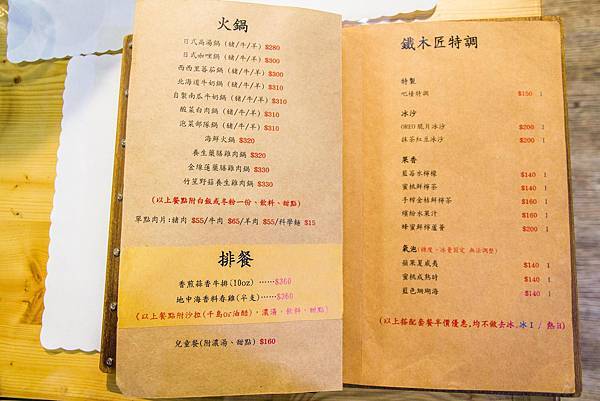 火鍋
日式高湯鍋 (豬/牛/羊) $280
日式咖哩鍋 (豬/牛/羊) $300
西西里蕃茄鍋 (豬/牛/羊) $300
北海道牛奶鍋 (豬/牛/羊) $310
自製南瓜牛奶鍋 (豬/牛/羊) $310
酸菜白肉鍋 (豬/牛/羊) $310
泡菜部隊鍋 (豬/牛/羊) $310
海鮮火鍋 $320
養生藥膳雞肉鍋 $320
金線蓮藥膳雞肉鍋 $330
竹笙野菇養生雞肉鍋 $330
(以上餐點附白飯或冬粉一份、飲料、甜點)
單點肉片:豬肉 $55/牛肉 $65/羊肉 $55/科學麵 $15
排餐
香煎蒜香牛排(10oz) ……$360
地中海香料春雞(半支) ……$360
(以上餐點附沙拉(千島or油醋)，濃湯、飲料、甜點)
兒童餐(附濃湯、甜點) $160
鐵木匠特調
特製
吧檯特調 $150 I
冰沙
OREO 脆片冰沙 $200 I
抹茶紅豆冰沙 $200 I
果香
藍莓水檸檬 $140 I
蜜桃鮮檸茶 $140 I
手榨金桔鮮檸茶 $160 I
繽紛水果汁 $160 I
蜂蜜鮮檸蘆薈 $200 I
氣泡(糖度、冰量固定 無法調整)
蘋果夏威夷 $140 I
蜜桃成熟時 $140 I
藍色珊瑚海 $140 I
(以上搭配套餐半價優惠,均不做去冰,冰 I / 熱 H)